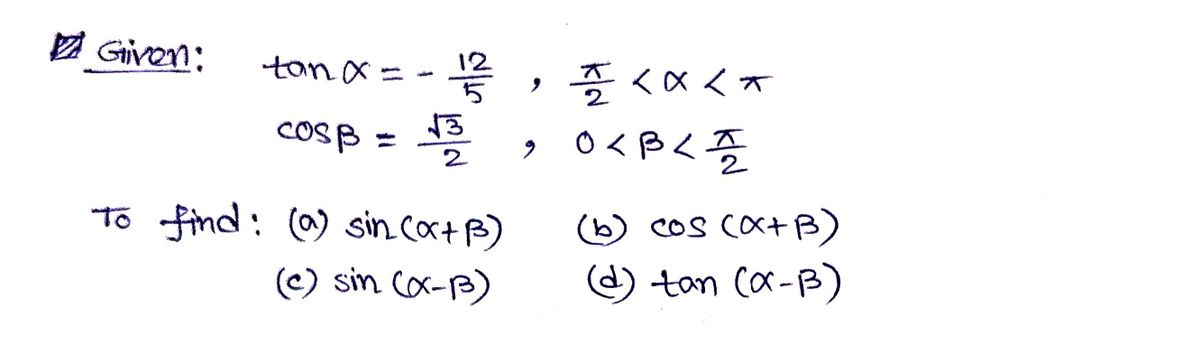 Given: tan α = - 12/5 , π/2 < α < π
cos β = √3/2 , 0 < β < π/2
To find: (a) sin (α+β) (b) cos (α+β)
(c) sin (α-β) (d) tan (α-β)